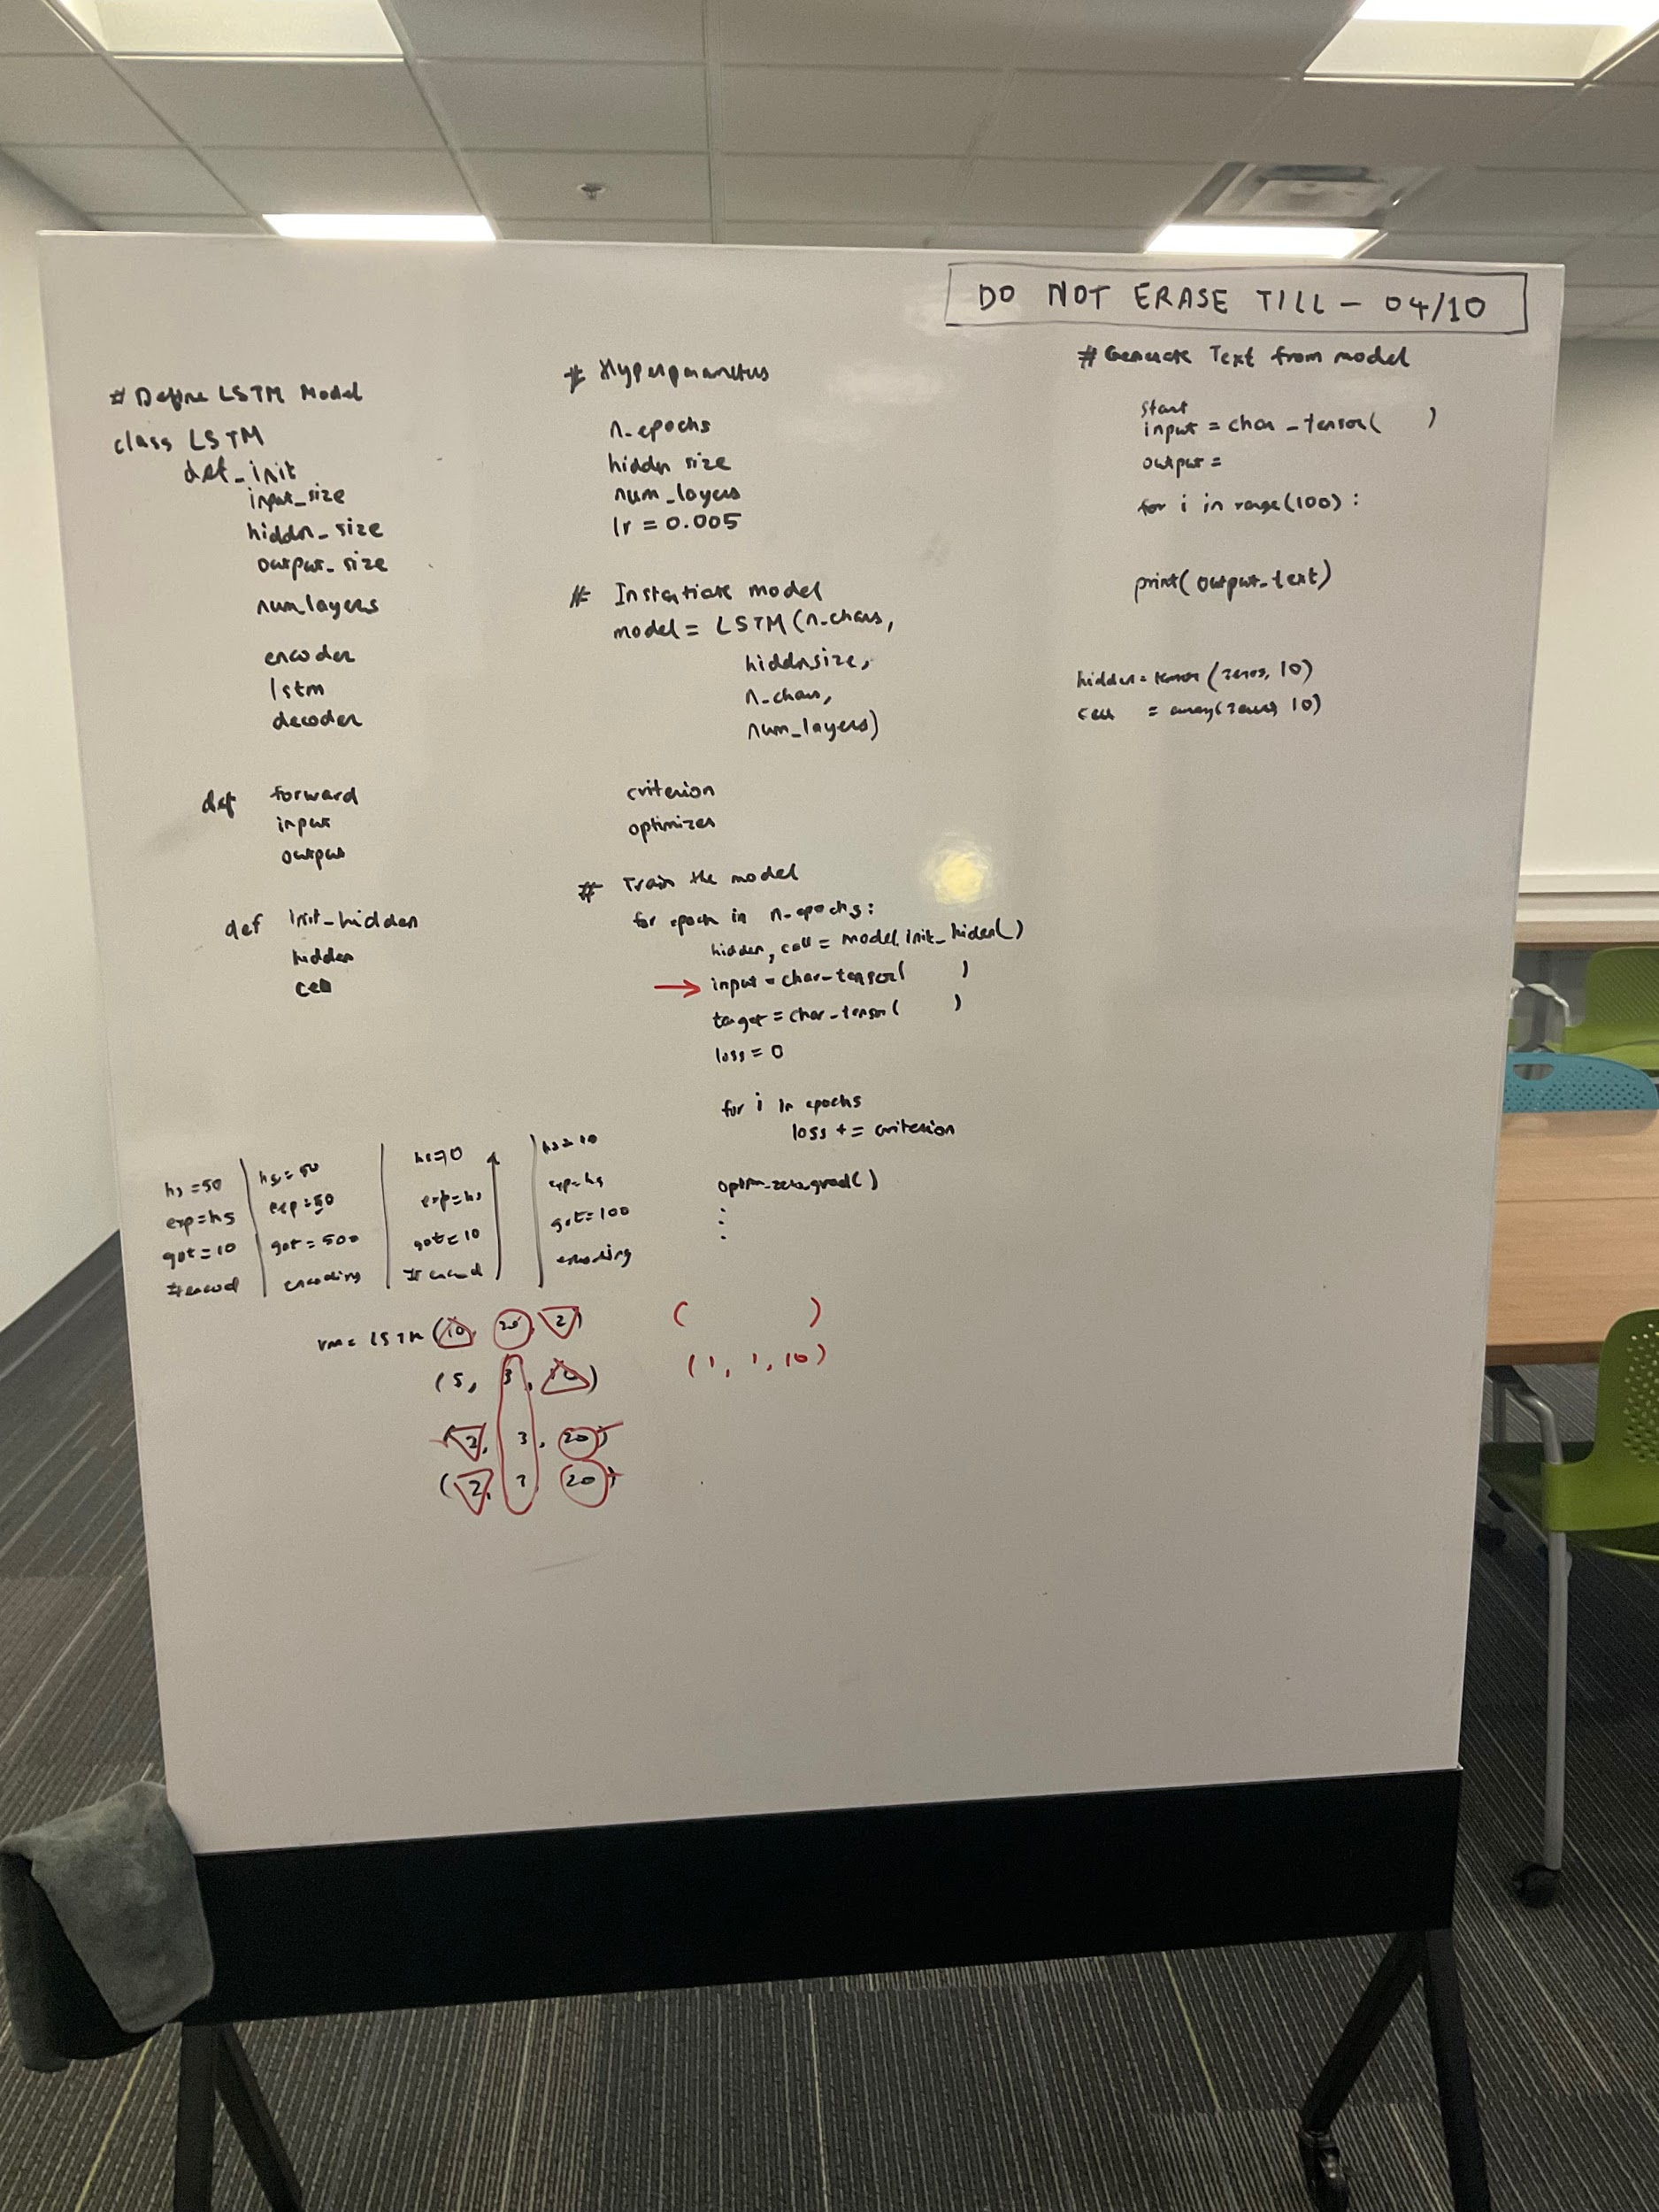 DO NOT ERASE TILL - 04/10
# Define LSTM Model
class LSTM
def_init
input_size
hiddn_size
output_size
num_layers
encoder
lstm
decoder
def forward
input
output
def init_hidden
hidden
cell
# Hyperparameters
n_epochs
hiddn size
num_layers
lr = 0.005
# Instantiate model
model = LSTM(n_chars,
hiddnsize,
n_chars,
num_layers)
criterion
optimizer
# Train the model
for epoch in n_epochs:
hidden, cell = model.init_hiden()
→ input = char_tensor( )
target = char_tensor( )
loss = 0
for i in epochs
loss += criterion
optim_zero_grad()
# Generate Text from model
start
input = char_tensor( )
output =
for i in range(100):
print(output_text)
hidden = tensor(zeros, 10)
cell = array(zeros, 10)
hs = 50
exp = hs
got = 10
# encod
hs = 50
exp = 50
got = 500
encoding
exp = hs
got = 10
# encod
hs = 10
exp = hs
got = 100
encoding
= LSTM (10, 20, 2)
(5, 3, 10)
(2, 3, 20)
(2, 3, 20)
( )
(1, 1, 10)